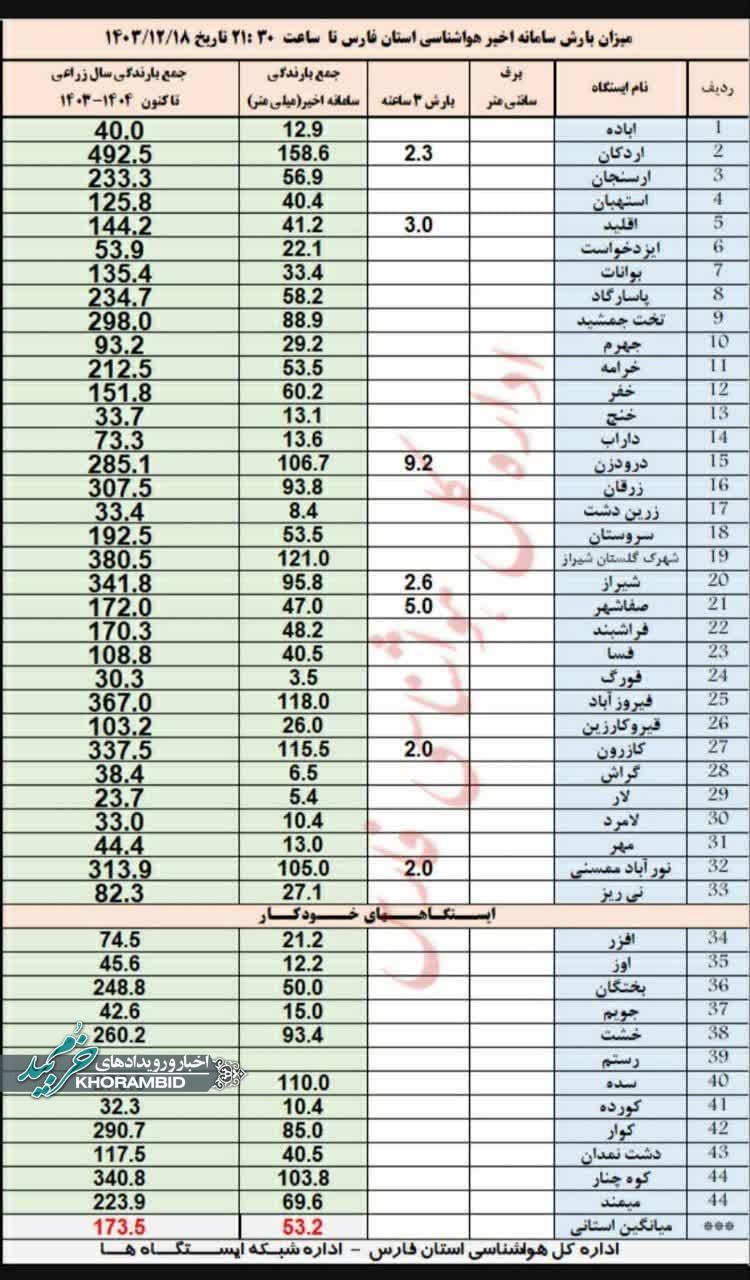 میزان بارش سامانه اخیر هواشناسی استان فارس تا ساعت ۲۱:۳۰ تاریخ ۱۴۰۳/۱۲/۱۸
ردیف نام ایستگاه برف سانتی متر بارش ۳ ساعته جمع بارندگی سامانه اخیر(میلی متر) جمع بارندگی سال زراعی تاکنون ۱۴۰۴-۱۴۰۳
۱ اباده 12.9 40.0
۲ اردکان 2.3 158.6 492.5
۳ ارسنجان 56.9 233.3
۴ استهبان 40.4 125.8
۵ اقلید 3.0 41.2 144.2
۶ ایزدخواست 22.1 53.9
۷ بوانات 33.4 135.4
۸ پاسارگاد 58.2 234.7
۹ تخت جمشید 88.9 298.0
۱۰ جهرم 29.2 93.2
۱۱ خرامه 53.5 212.5
۱۲ خفر 60.2 151.8
۱۳ خنج 13.1 33.7
۱۴ داراب 13.6 73.3
۱۵ درودزن 9.2 106.7 285.1
۱۶ زرقان 93.8 307.5
۱۷ زرین دشت 8.4 33.4
۱۸ سروستان 53.5 192.5
۱۹ شهرک گلستان شیراز 121.0 380.5
۲۰ شیراز 2.6 95.8 341.8
۲۱ صفاشهر 5.0 47.0 172.0
۲۲ فراشبند 48.2 170.3
۲۳ فسا 40.5 108.8
۲۴ فورگ 3.5 30.3
۲۵ فیروزآباد 118.0 367.0
۲۶ قیروکارزین 26.0 103.2
۲۷ کازرون 2.0 115.5 337.5
۲۸ گراش 6.5 38.4
۲۹ لار 5.4 23.7
۳۰ لامرد 10.4 33.0
۳۱ مهر 13.0 44.4
۳۲ نورآباد ممسنی 2.0 105.0 313.9
۳۳ نی ریز 27.1 82.3
ایستگاههای خودکار
۳۴ افزر 21.2 74.5
۳۵ اوز 12.2 45.6
۳۶ بختگان 50.0 248.8
۳۷ جویم 15.0 42.6
۳۸ خشت 93.4 260.2
۳۹ رستم
۴۰ سده 110.0
۴۱ کورده 10.4 32.3
۴۲ کوار 85.0 290.7
۴۳ دشت نمدان 40.5 117.5
۴۴ کوه چنار 103.8 340.8
۴۴ میمند 69.6 223.9
*** میانگین استانی 53.2 173.5
اداره کل هواشناسی استان فارس - اداره شبکه ایستگاه ها
اداره کل هواشناسی فارس
اخبار و رویدادهای خرمبید
KHORAMBID